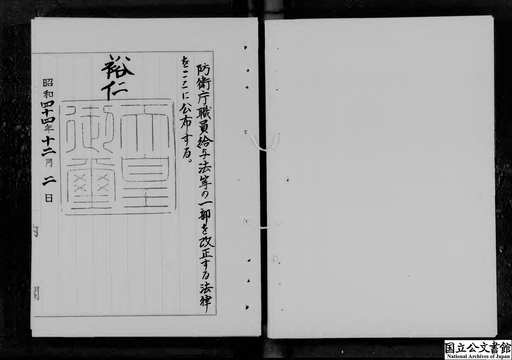 防衛庁職員給与法等の一部を改正する法律
をここに公布する。
裕仁
天皇
御璽
昭和四十四年十二月二日
内
閣
国立公文書館
National Archives of Japan